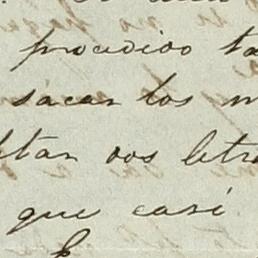 procedido ta
sacar los m
ltar dos letra
que casi